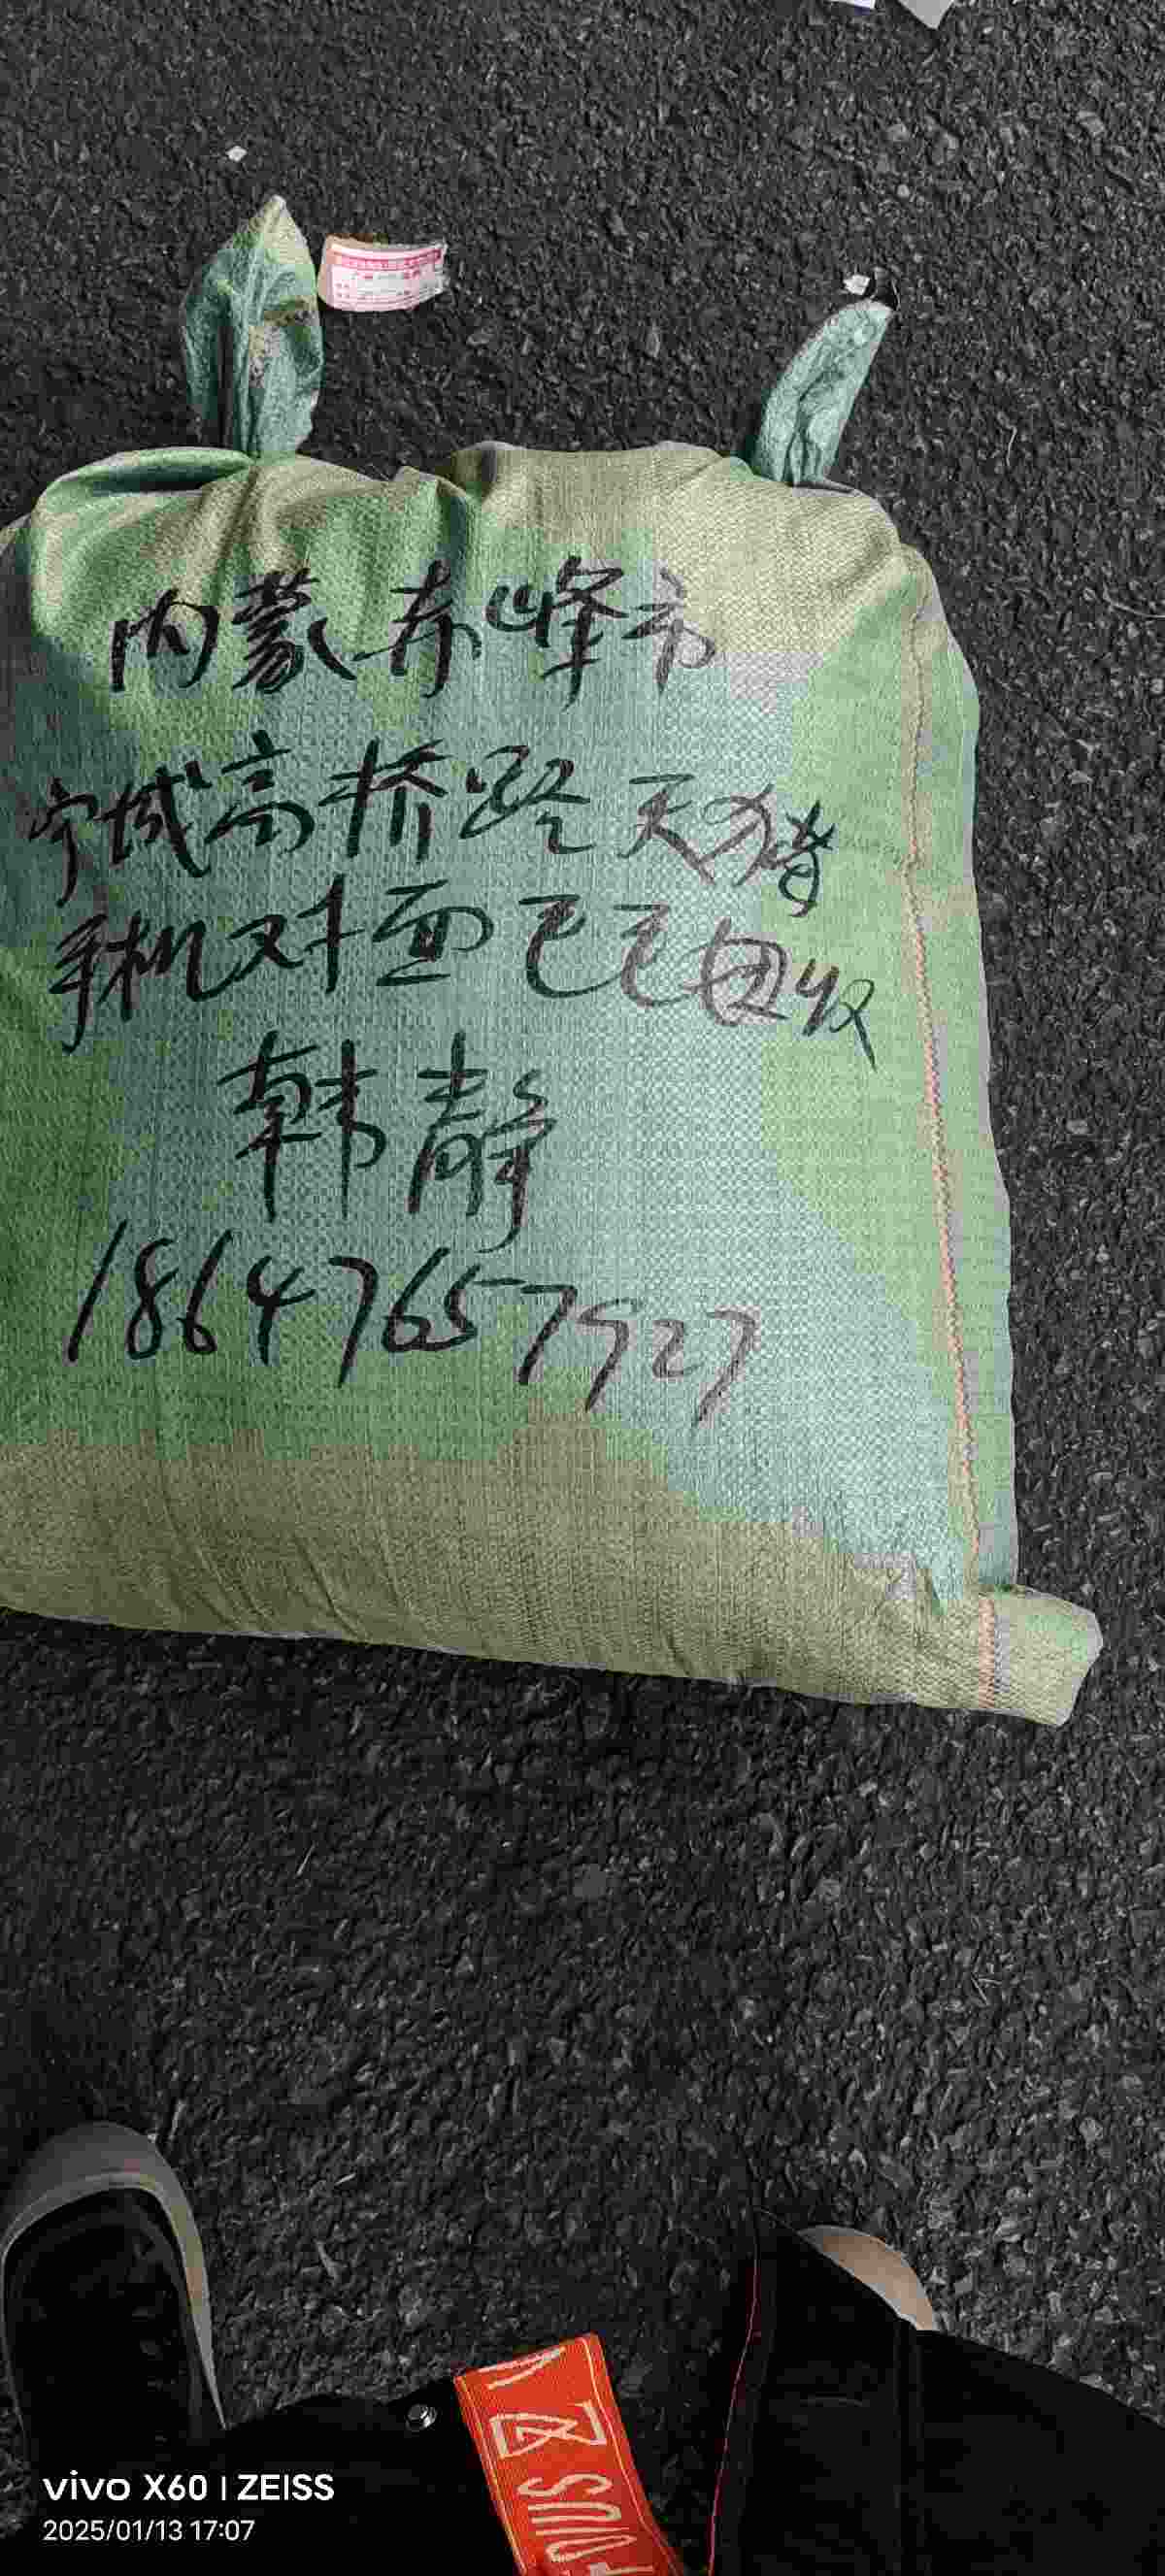 内蒙赤峰市
宁城高桥路天猪
手机对面巴巴团收
韩静
18647657927
vivo X60 | ZEISS
2025/01/13 17:07